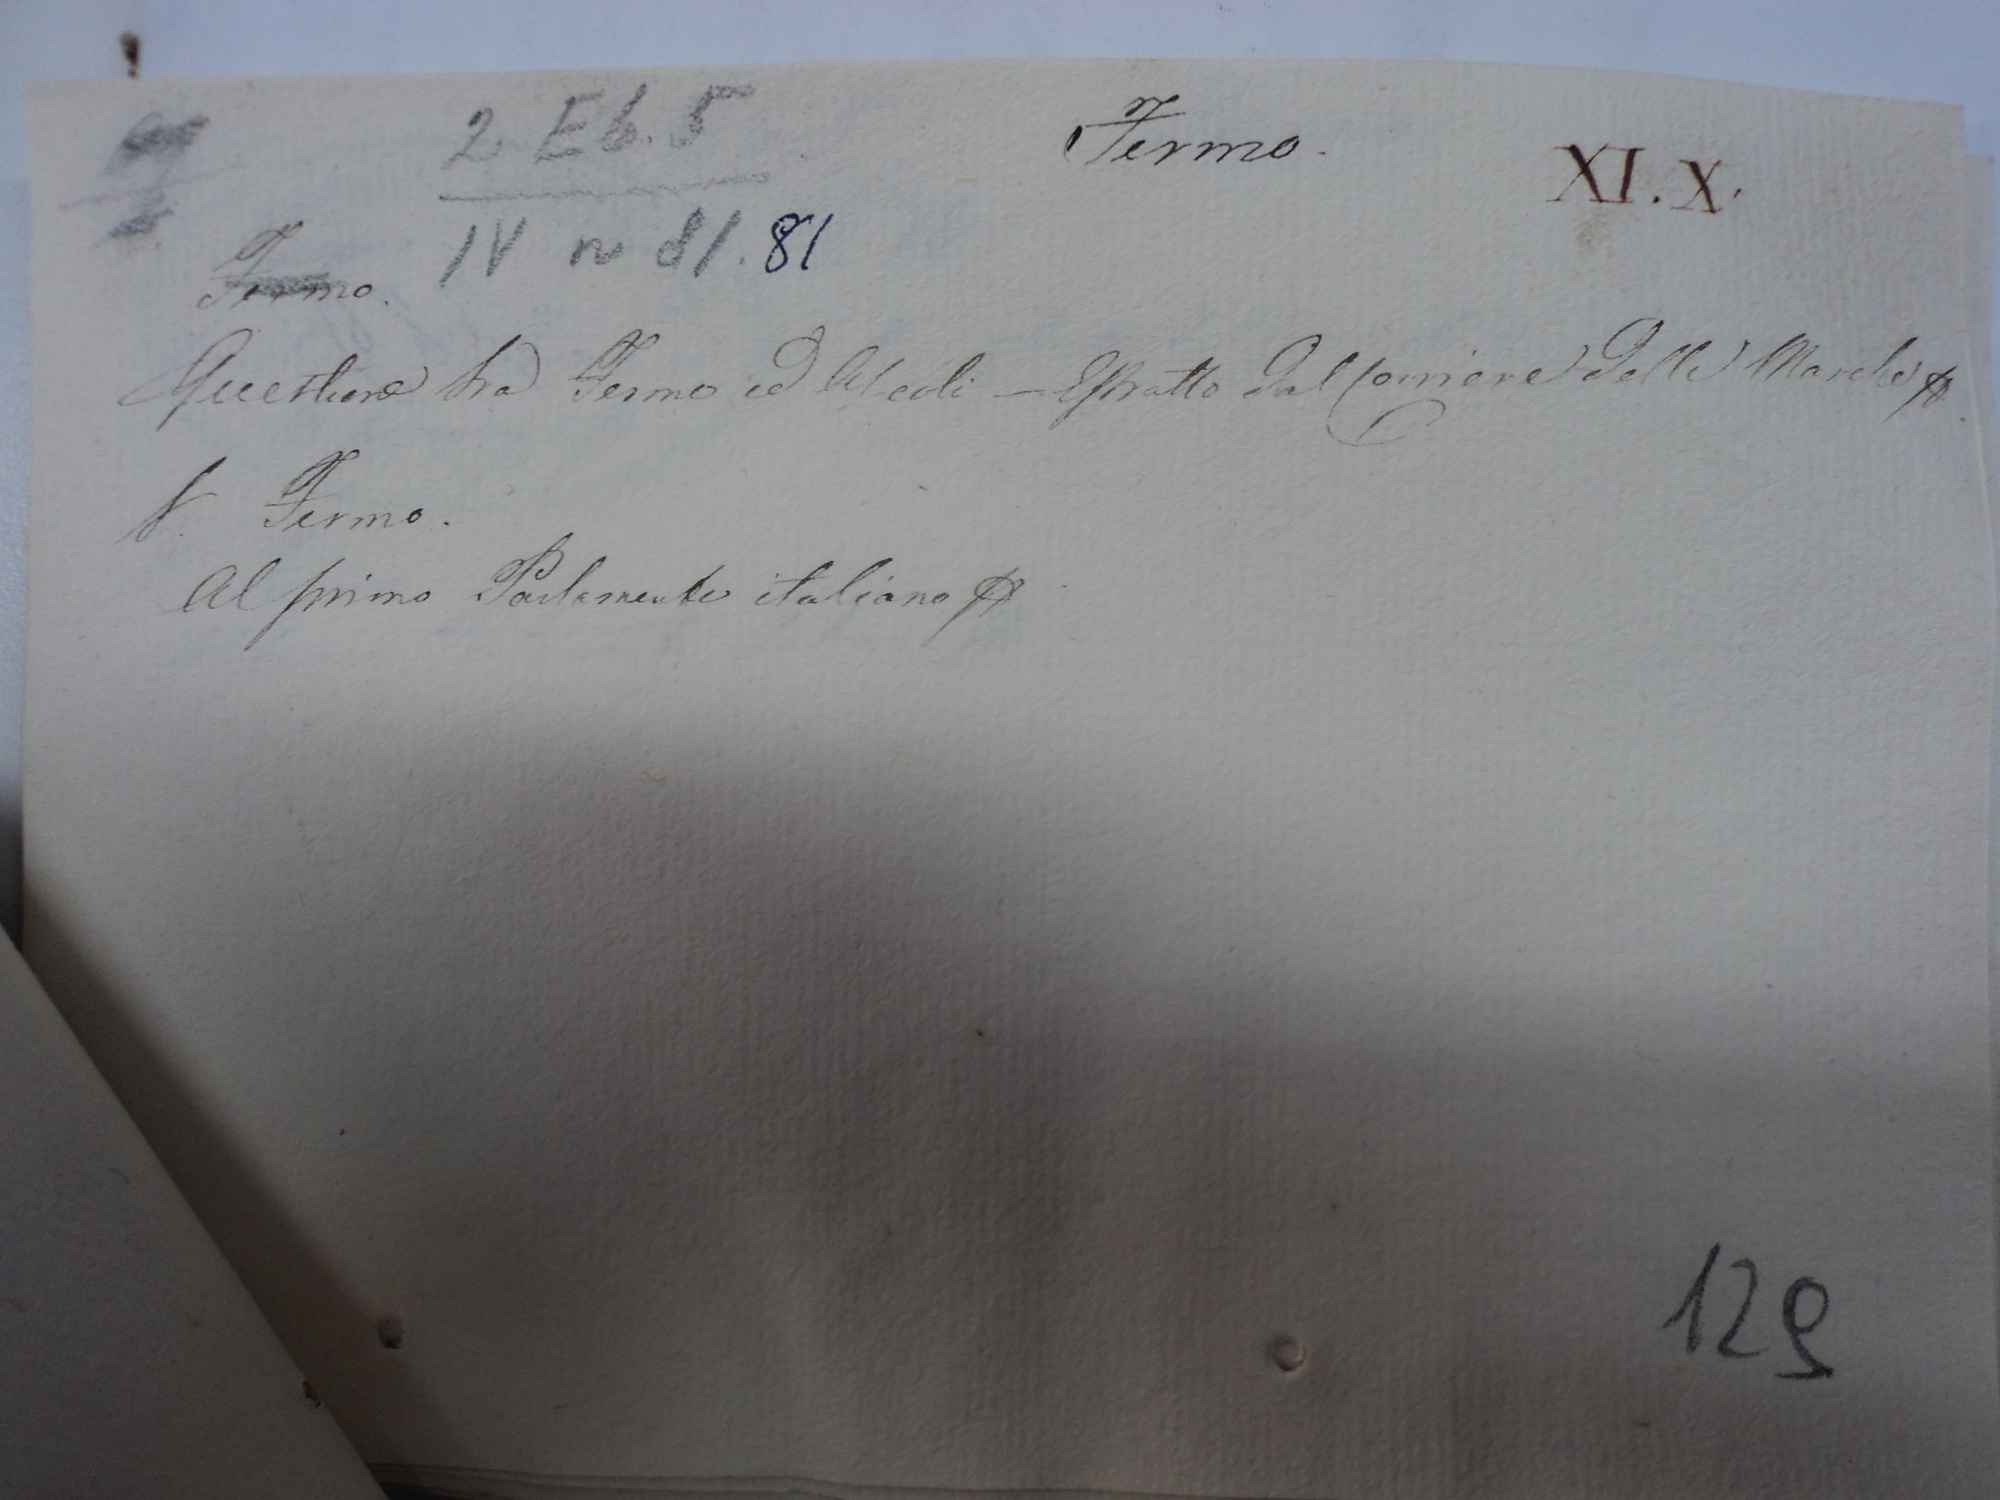 2 Eb. 5
Fermo.
XI. X.
IV n 81. 81
Fermo.
Questione tra Fermo ed Ascoli - Estratto dal Corriere delle Marche
Fermo.
Al primo Parlamento italiano
129